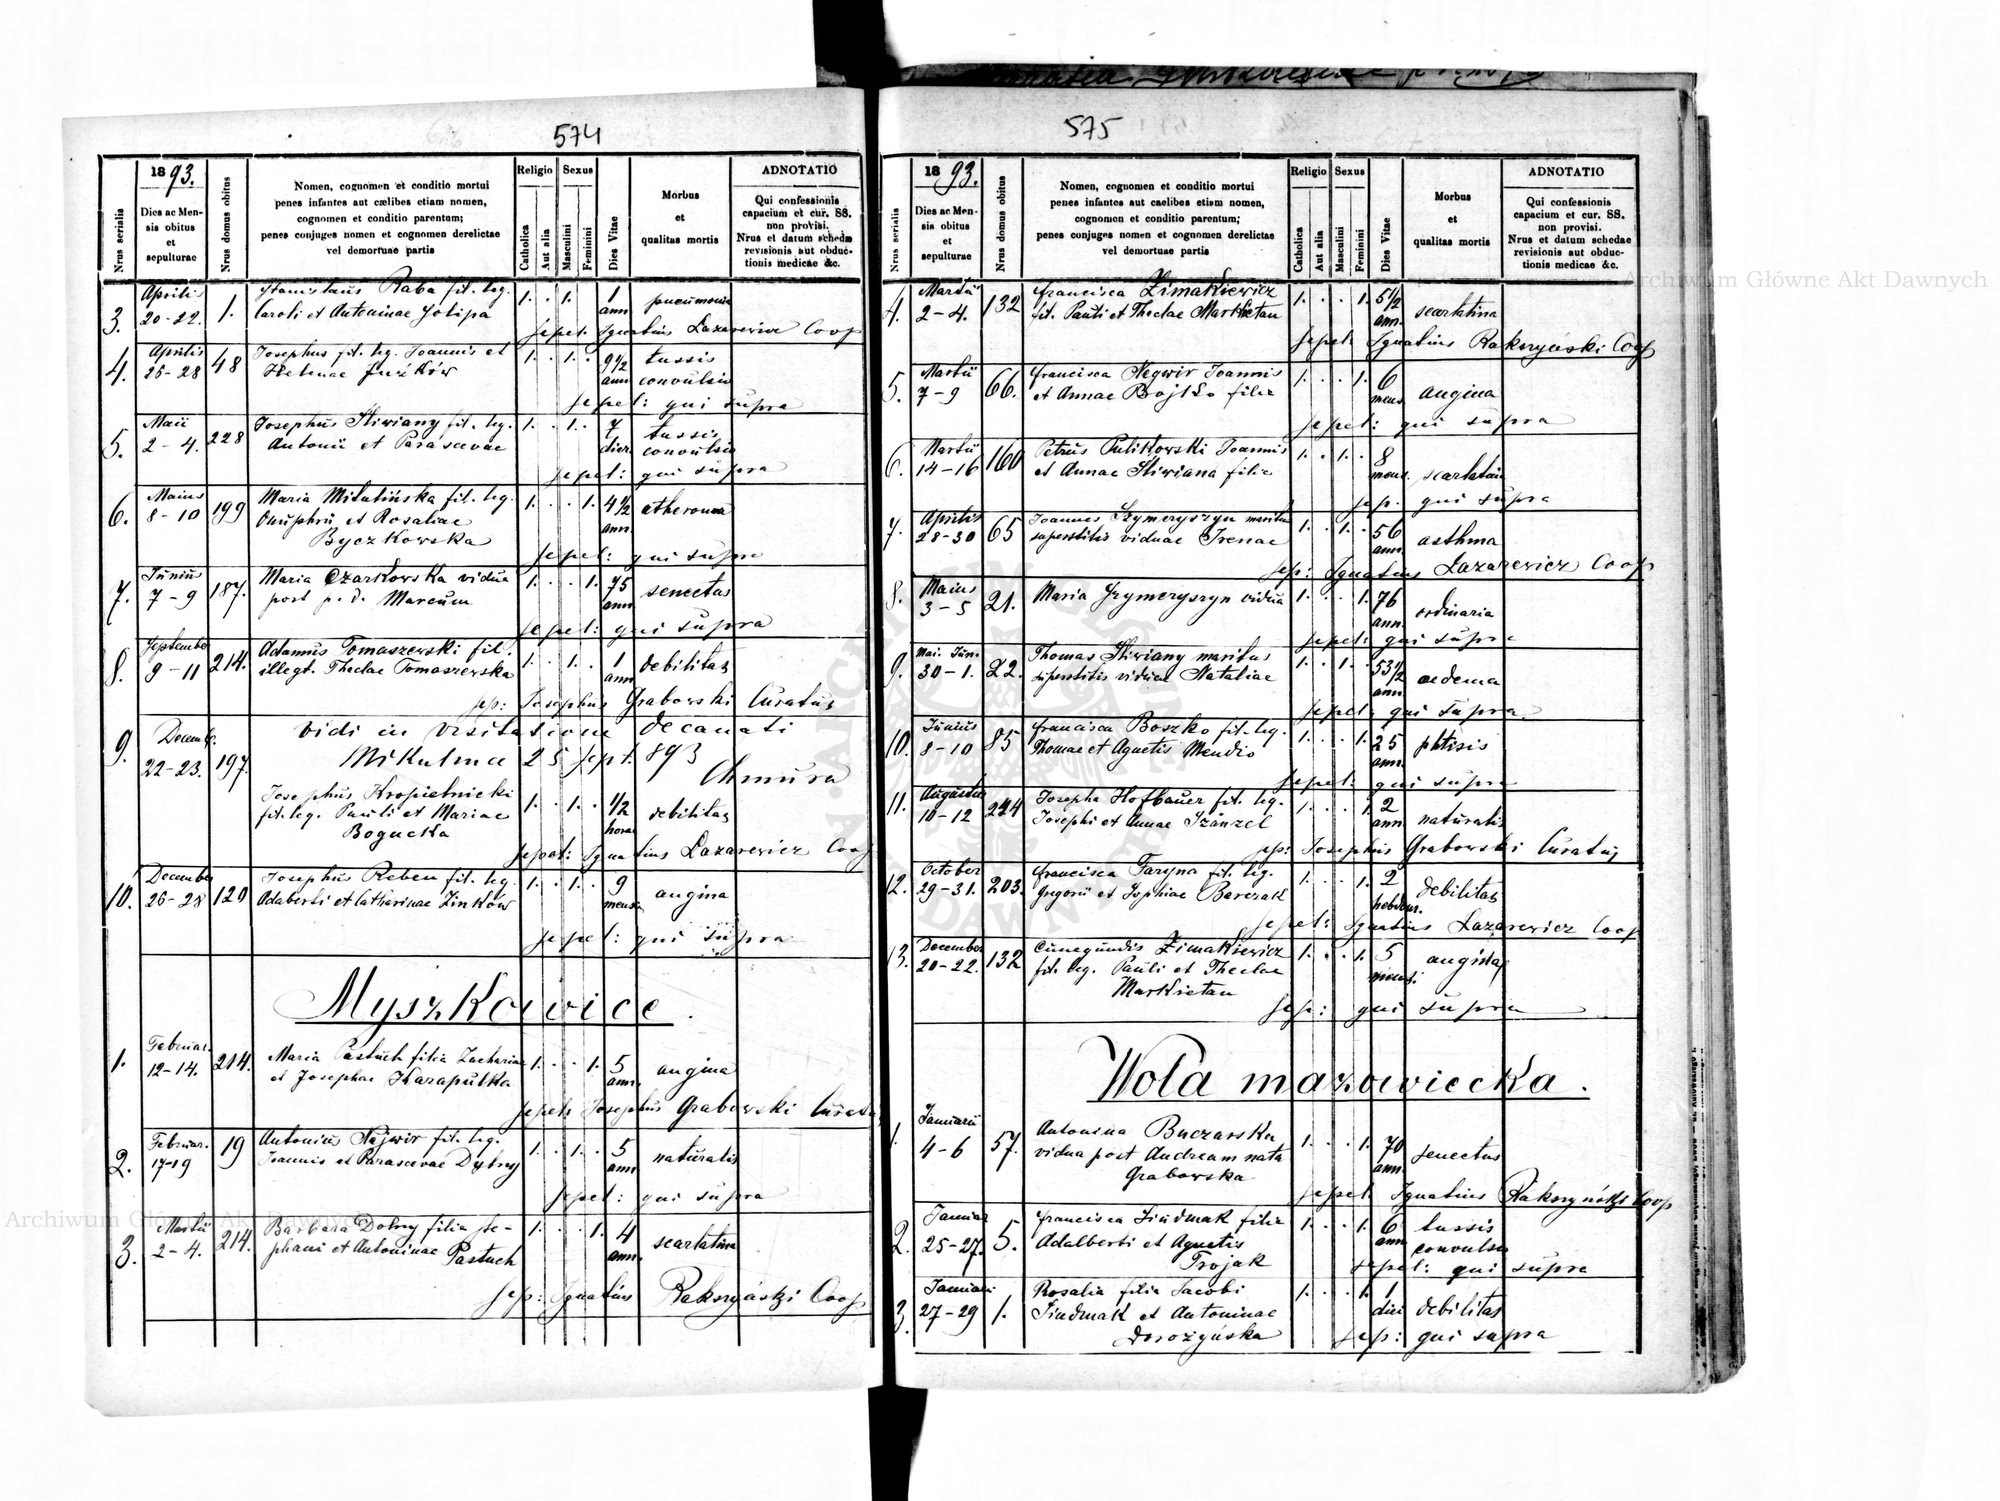 574
1893.
Nrus serialis
Dies ac Mensis obitus et sepulturae
Nrus domus obitus
Nomen, cognomen et conditio mortui
penes infantes aut cælibes etiam nomen,
cognomen et conditio parentum;
penes conjuges nomen et cognomen derelictae
vel demortuae partis
Religio
Catholica
Aut alia
Sexus
Masculini
Feminini
Dies Vitae
Morbus
et
qualitas mortis
ADNOTATIO
Qui confessionis
capacium et cur. SS.
non provisi.
Nrus et datum schedæ
revisionis aut obduc-
tionis medicae &c.
3. Aprilis 20-22. 1. Stanislaus Raba fil. leg. 1. . 1. . 1 ann pneumonia
Caroli et Antoninae
Sepel: Ignatius Lazarewicz Coop
4. Aprilis 26-28 48 Josephus fil. leg. Joannis et 1. . 1. . 9 1/2 ann tussis convulsiv
Helenae
Sepel: qui supra
5. Maii 2-4. 228 Josephus Śliwiany fil. leg. 1. . 1. . 7 dier. tussis convulsiv
Antonii et Parascevae
Sepel: qui supra
6. Maius 8-10 199 Maria Mikulińska fil. leg. 1. . . 1. 4 1/2 ann. atheroma
Onuphrii et Rosaliae
Byczkowska
Sepel: qui supra
7. Junius 7-9 187. Maria Czarkowska vidua 1. . . 1. 75 ann. senectus
post p. d. Marcum
Sepel: qui supra
8. September 9-11 214. Adamus Tomaszewski fil. 1. . 1. . 1 ann debilitas
illegt. Theclae Tomaszewska
Sep: Josephus Grabowski Curatus
Vidi in visitatione decanali
Mikulińce 25 Sept. 893
Chmura
9. Decemb. 22-23. 197. Josephus Kropielnicki 1. . 1. . 1/2 horae debilitas
fil. leg. Pauli et Mariae
Bogucka
Sepel: Ignatius Lazarewicz Coop
10. December 26-28 120 Josephus Reben fil. leg. 1. . 1. . 9 mensi angina
Adalberti et Catharinae Zinkow
Sepel: qui supra
Myszkowice.
1. Februar. 12-14. 214. Maria Pastuch filia Zachariae 1. . . 1. 5 ann. angina
et Josephae Karapulka
Sepel: Josephus Grabowski Curatus
2. Februar. 17-19 19 Antonius Najwir fil. leg. 1. . 1. . 5 ann naturalis
Joannis et Parascevae
Sepel: qui supra
3. Martii 2-4. 214. Barbara Dobny filia Ste- 1. . . 1. 4 ann. scarlatina
phani et Antoninae Pastuch
Sep: Ignatius Rakszyński Coop
575
1893.
Nrus serialis
Dies ac Mensis obitus et sepulturae
Nrus domus obitus
Nomen, cognomen et conditio mortui
penes infantes aut caelibes etiam nomen,
cognomen et conditio parentum;
penes conjuges nomen et cognomen derelictae
vel demortuae partis
Religio
Catholica
Aut alia
Sexus
Masculini
Feminini
Dies Vitae
Morbus
et
qualitas mortis
ADNOTATIO
Qui confessionis
capacium et cur. SS.
non provisi.
Nrus et datum schedae
revisionis aut obduc-
tionis medicae &c.
4. Martii 2-4. 132 Francisca Zimakiewicz 1. . . 1. 5 1/2 ann. scarlatina
fil. Pauli et Theclae Markietan
Sepel: Ignatius Rakszyński Coop
5. Martii 7-9 66. Francisca Negwir Joannis 1. . . 1. 6 mens. angina
et Annae Bojko filia
Sepel: qui supra
6. Martii 14-16 160 Petrus Pulikowski Joannis 1. . 1. . 8 mens. scarlatina
et Annae Śliwiana filia
Sep. qui supra
7. Aprilis 28-30 65 Joannes Szymeryszyn maritus 1. . 1. . 56 ann. asthma
superstitis viduae Irenae
Sep: Ignatius Lazarewicz Coop
8. Maius 3-5 21. Maria Szymeryszyn vidua 1. . . 1. 76 ann. ordinaria
Sepel: qui supra
9. Mai. Jun. 30-1. 22. Thomas Śliwiany maritus 1. . 1. . 53 1/2 ann. oedema
superstitis viduae Nataliae
Sepel: qui supra
10. Junius 8-10 85 Francisca Boszko fil. leg. 1. . . 1. 25 ann. phtisis
Thomae et Agnetis Mendio
Sepel: qui supra
11. Augustus 10-12 224 Josepha Hofbauer fil. leg. 1. . . 1. 2 ann naturalis
Josephi et Annae Szänzel
Sep: Josephus Grabowski Curatus
12. October 29-31. 203. Francisca Faryna fil. leg. 1. . . 1. 2 hebdom. debilitas
Gregorii et Sophiae Barczak
Sepel: Ignatius Lazarewicz Coop
13. December 20-22. 132 Cunegundis Zimakiewicz 1. . . 1. 5 mens. angina
fil. leg. Pauli et Theclae
Markietan
Sep: qui supra
Wola mazowiecka.
1. Januarii 4-6 57. Antonina Buczarska 1. . . 1. 70 ann. senectus
vidua post Andream nata
Grabowska
Sepel: Ignatius Rakszyński Coop
2. Januar 25-27. 5. Francisca Sindmak filia 1. . . 1. 6 ann tussis convulsiv
Adalberti et Agnetis
Trojak
Sepel: qui supra
3. Januarii 27-29 1. Rosalia filia Jacobi 1. . . 1. 1 diei debilitas
Sindmak et Antoninae
Dorożyńska
Sep: qui supra
Archiwum Główne Akt Dawnych
Archiwum Główne Akt Dawnych